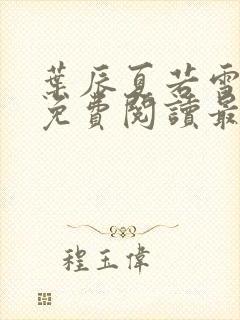 葉辰夏若雪
免費閱讀最
程玉偉